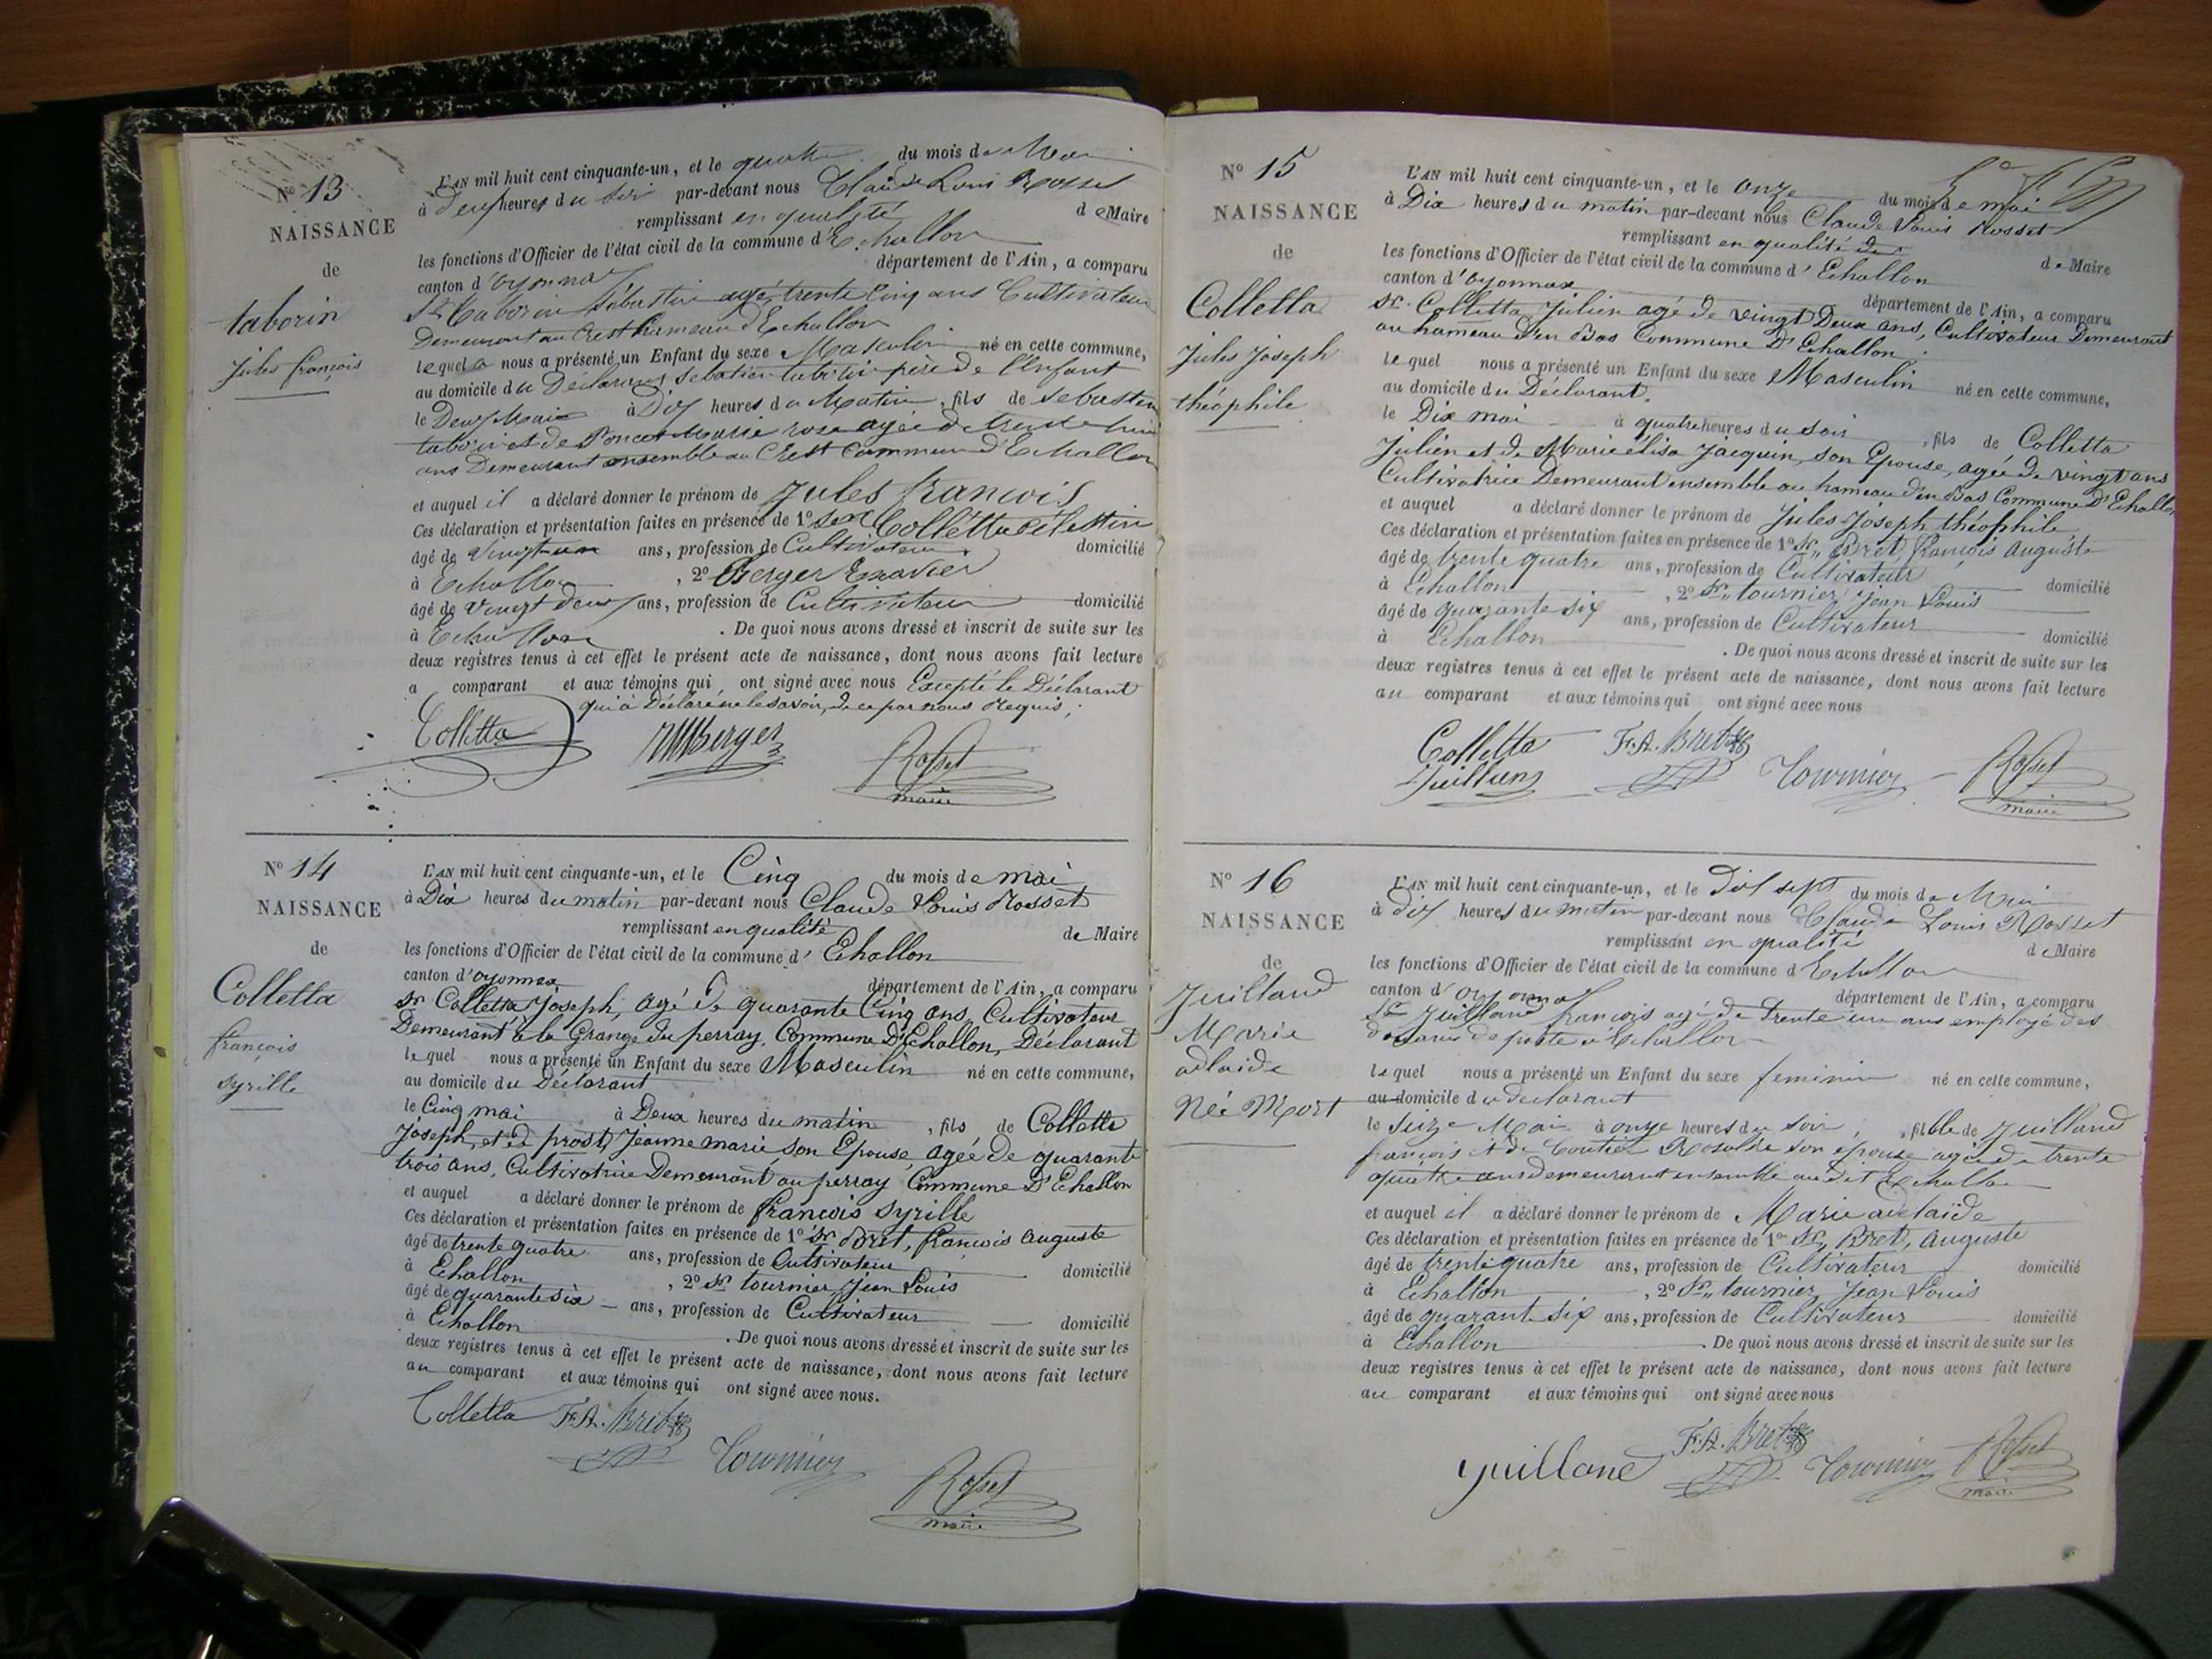 N° 13
NAISSANCE
de
taborin
jules françois
L'AN mil huit cent cinquante-un, et le quatre du mois de Mai
à deux heures du soir par-devant nous Claude Louis Rosset
remplissant en qualité de Maire
les fonctions d'Officier de l'état civil de la commune d'Echallon
canton d'oyonnax département de l'Ain, a comparu
Sr taborin sébastien agé trente cinq ans Cultivateur
Demeurant au Crest hameau d'Echallon
lequel a nous a présenté un Enfant du sexe Masculin né en cette commune,
au domicile du Déclarant sebatien taborin père de l'Enfant
le Deux Mai à Dix heures du Matin, fils de sebastien
taborin et de Poncet Marie rose agée de trente huit
ans Demeurant ensemble au Crest Commune d'Echallon
et auquel il a déclaré donner le prénom de Jules francois
Ces déclaration et présentation faites en présence de 1° Collétta Célestin
âgé de vingt-un ans, profession de Cultivateur domicilié
à Echallon, 2° Berger Exavier
âgé de vingt deux ans, profession de Cultivateur domicilié
à Echallon. De quoi nous avons dressé et inscrit de suite sur les
deux registres tenus à cet effet le présent acte de naissance, dont nous avons fait lecture
a comparant et aux témoins qui ont signé avec nous Excepté le Déclarant
qui à Déclaré ne le savoir, de ce par nous Requis;
Colletta Berger Rosset
maire
N° 14
NAISSANCE
de
Colletta
francois
syrille
L'AN mil huit cent cinquante-un, et le Cinq du mois de mai
à Dix heures du matin par-devant nous Claude Louis Rosset
remplissant en qualité de Maire
les fonctions d'Officier de l'état civil de la commune d'Echallon
canton d'oyonnax département de l'Ain, a comparu
Sr Colletta Joseph, agé de quarante Cinq ans, Cultivateur
Demeurant à la Grange du perray, Commune D'Echallon, Déclarant
lequel nous a présenté un Enfant du sexe Masculin né en cette commune,
au domicile du Déclarant
le Cinq mai à Deux heures du matin, fils de Colletta
Joseph, et de prost, Jeanne marie, son Epouse, agée de quarante
trois ans, Cultivatrice Demeurant au perray Commune D'Echallon
et auquel a déclaré donner le prénom de francois syrille
Ces déclaration et présentation faites en présence de 1° Sr Bret, francois auguste
âgé de trente quatre ans, profession de Cultivateur domicilié
à Echallon, 2° Sr tournier Jean Louis
âgé de quarante six ans, profession de Cultivateur domicilié
à Echallon. De quoi nous avons dressé et inscrit de suite sur les
deux registres tenus à cet effet le présent acte de naissance, dont nous avons fait lecture
au comparant et aux témoins qui ont signé avec nous.
Colletta F.A. Bret Tournier Rosset
maire
N° 15
NAISSANCE
de
Colletta
jules joseph
théophile
L'AN mil huit cent cinquante-un, et le onze du mois de mai
à Dix heures du matin par-devant nous Claude Louis Rosset
remplissant en qualité de de Maire
les fonctions d'Officier de l'état civil de la commune d'Echallon
canton d'oyonnax département de l'Ain, a comparu
Sr. Colletta, Julien agé de vingt Deux ans, Cultivateur Demeurant
au hameau D'en Bas Commune D'Echallon
lequel nous a présenté un Enfant du sexe Masculin né en cette commune,
au domicile du Déclarant.
le Dix mai à quatre heures du soir, fils de Colletta
Julien et de Marie élisa Jacquin, son Epouse, agée de vingt ans
Cultivatrice Demeurant ensemble au hameau d'en Bas Commune D'Echallon
et auquel a déclaré donner le prénom de Jules Joseph théophile
Ces déclaration et présentation faites en présence de 1° Sr Bret, francois auguste
âgé de trente quatre ans, profession de Cultivateur
à Echallon domicilié, 2° Sr tournier, Jean Louis
âgé de quarante six ans, profession de Cultivateur
à Echallon domicilié. De quoi nous avons dressé et inscrit de suite sur les
deux registres tenus à cet effet le présent acte de naissance, dont nous avons fait lecture
au comparant et aux témoins qui ont signé avec nous
Colletta F.A. Bret Tournier Rosset
maire
N° 16
NAISSANCE
de
Juilland
Marie
adlaide
Né Mort
L'AN mil huit cent cinquante-un, et le Dix sept du mois de Mai
à dix heures du matin par-devant nous Claude Louis Rosset
remplissant en qualité de Maire
les fonctions d'Officier de l'état civil de la commune d Echallon
canton d'oyonnax département de l'Ain, a comparu
Sr Juilland françois agé de trente un ans employé des
de poste à Echallon
lequel nous a présenté un Enfant du sexe feminin né en cette commune,
au domicile du déclarant
le Seize Mai à onze heures du soir, fille de Juilland
françois et de Coutier Rosalie son épouse agée de trente
quatre ans demeurant ensemble au dit Echallon
et auquel il a déclaré donner le prénom de Marie adelaïde
Ces déclaration et présentation faites en présence de 1° Sr Bret, auguste
âgé de trente quatre ans, profession de Cultivateur domicilié
à Echallon, 2° Sr tournier, Jean Louis
âgé de quarante six ans, profession de Cultivateur domicilié
à Echallon. De quoi nous avons dressé et inscrit de suite sur les
deux registres tenus à cet effet le présent acte de naissance, dont nous avons fait lecture
au comparant et aux témoins qui ont signé avec nous
F.A. Bret Tournier Rosset
maire